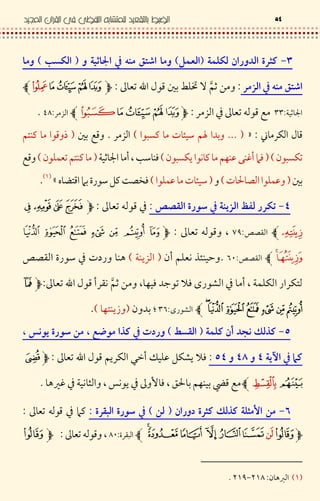 ٥٤ الضبط بالتقعيد للمتشابه اللفظي في القرآن المجيد
٣- كثرة الدوران لكلمة (العمل) وما اشتق منه في الجاثية و ( الكسب ) وما
اشتق منه في الزمر : ومن ثمَّ لا تخلط بين قول الله تعالى : ﴿ وَبَدَا لَهُمْ سَيِّـَٔاتُ مَا عَمِلُوا۟ ﴾
الجاثية: ٣٣ مع قوله تعالى في الزمر : ﴿ وَبَدَا لَهُمْ سَيِّـَٔاتُ مَا كَسَبُوا۟ ﴾ الزمر: ٤٨ .
قال الكرماني : « ( ... وبدا لهم سيئات ما كسبوا ) الزمر . وقع بين ( ذوقوا ما كنتم
تكسبون ) ( فما أغنى عنهم ما كانوا يكسبون ) فناسب ، أما الجاثية ( ما كنتم تعملون ) وقع
بين ( وعملوا الصالحات ) و ( سيئات ما عملوا ) فخصت كل سورة بما اقتضاه » (١).
٤- تكرر لفظ الزينة في سورة القصص : في قوله تعالى : ﴿ فَخَرَجَ عَلَىٰ قَوْمِهِۦ فِى
زِينَتِهِۦ ﴾ القصص: ٧٩ ، وقوله تعالى : ﴿ وَمَآ أُوتِيتُم مِّن شَىْءٍ فَمَتَـٰعُ ٱلْحَيَوٰةِ ٱلدُّنْيَا
وَزِينَتُهَا ﴾ القصص: ٦٠ . وحينئذ نعلم أن ( الزينة ) هنا وردت في سورة القصص
لتكرار الكلمة ، أما في الشورى فلا توجد فيها، ومن ثمَّ نقرأ قول الله تعالى: ﴿ فَمَآ
أُوتِيتُم مِّن شَىْءٍ فَمَتَـٰعُ ٱلْحَيَوٰةِ ٱلدُّنْيَا ﴾ الشورى: ٤٣٦ بدون (وزينتها ).
٥- كذلك نجد أن كلمة ( القسط ) وردت في كذا موضع ، من سورة يونس ،
كما في الآية ٤ و ٤٨ و ٥٤ : فلا يشكل عليك أخي الكريم قول الله تعالى : ﴿ قُضِىَ
بَيْنَهُم بِٱلْقِسْطِ ﴾ مع قضي بينهم بالحق ، فالأولى في يونس ، والثانية في غيرها .
٦- من الأمثلة كذلك كثرة دوران ( لن ) في سورة البقرة : كما في قوله تعالى :
﴿ وَقَالُوا۟ لَن تَمَسَّنَا ٱلنَّارُ إِلَّآ أَيَّامًا مَّعْدُودَةً ﴾ البقرة: ٨٠ ، وقوله تعالى : ﴿ وَقَالُوا۟
(١) البرهان: ٢١٨-٢١٩ .